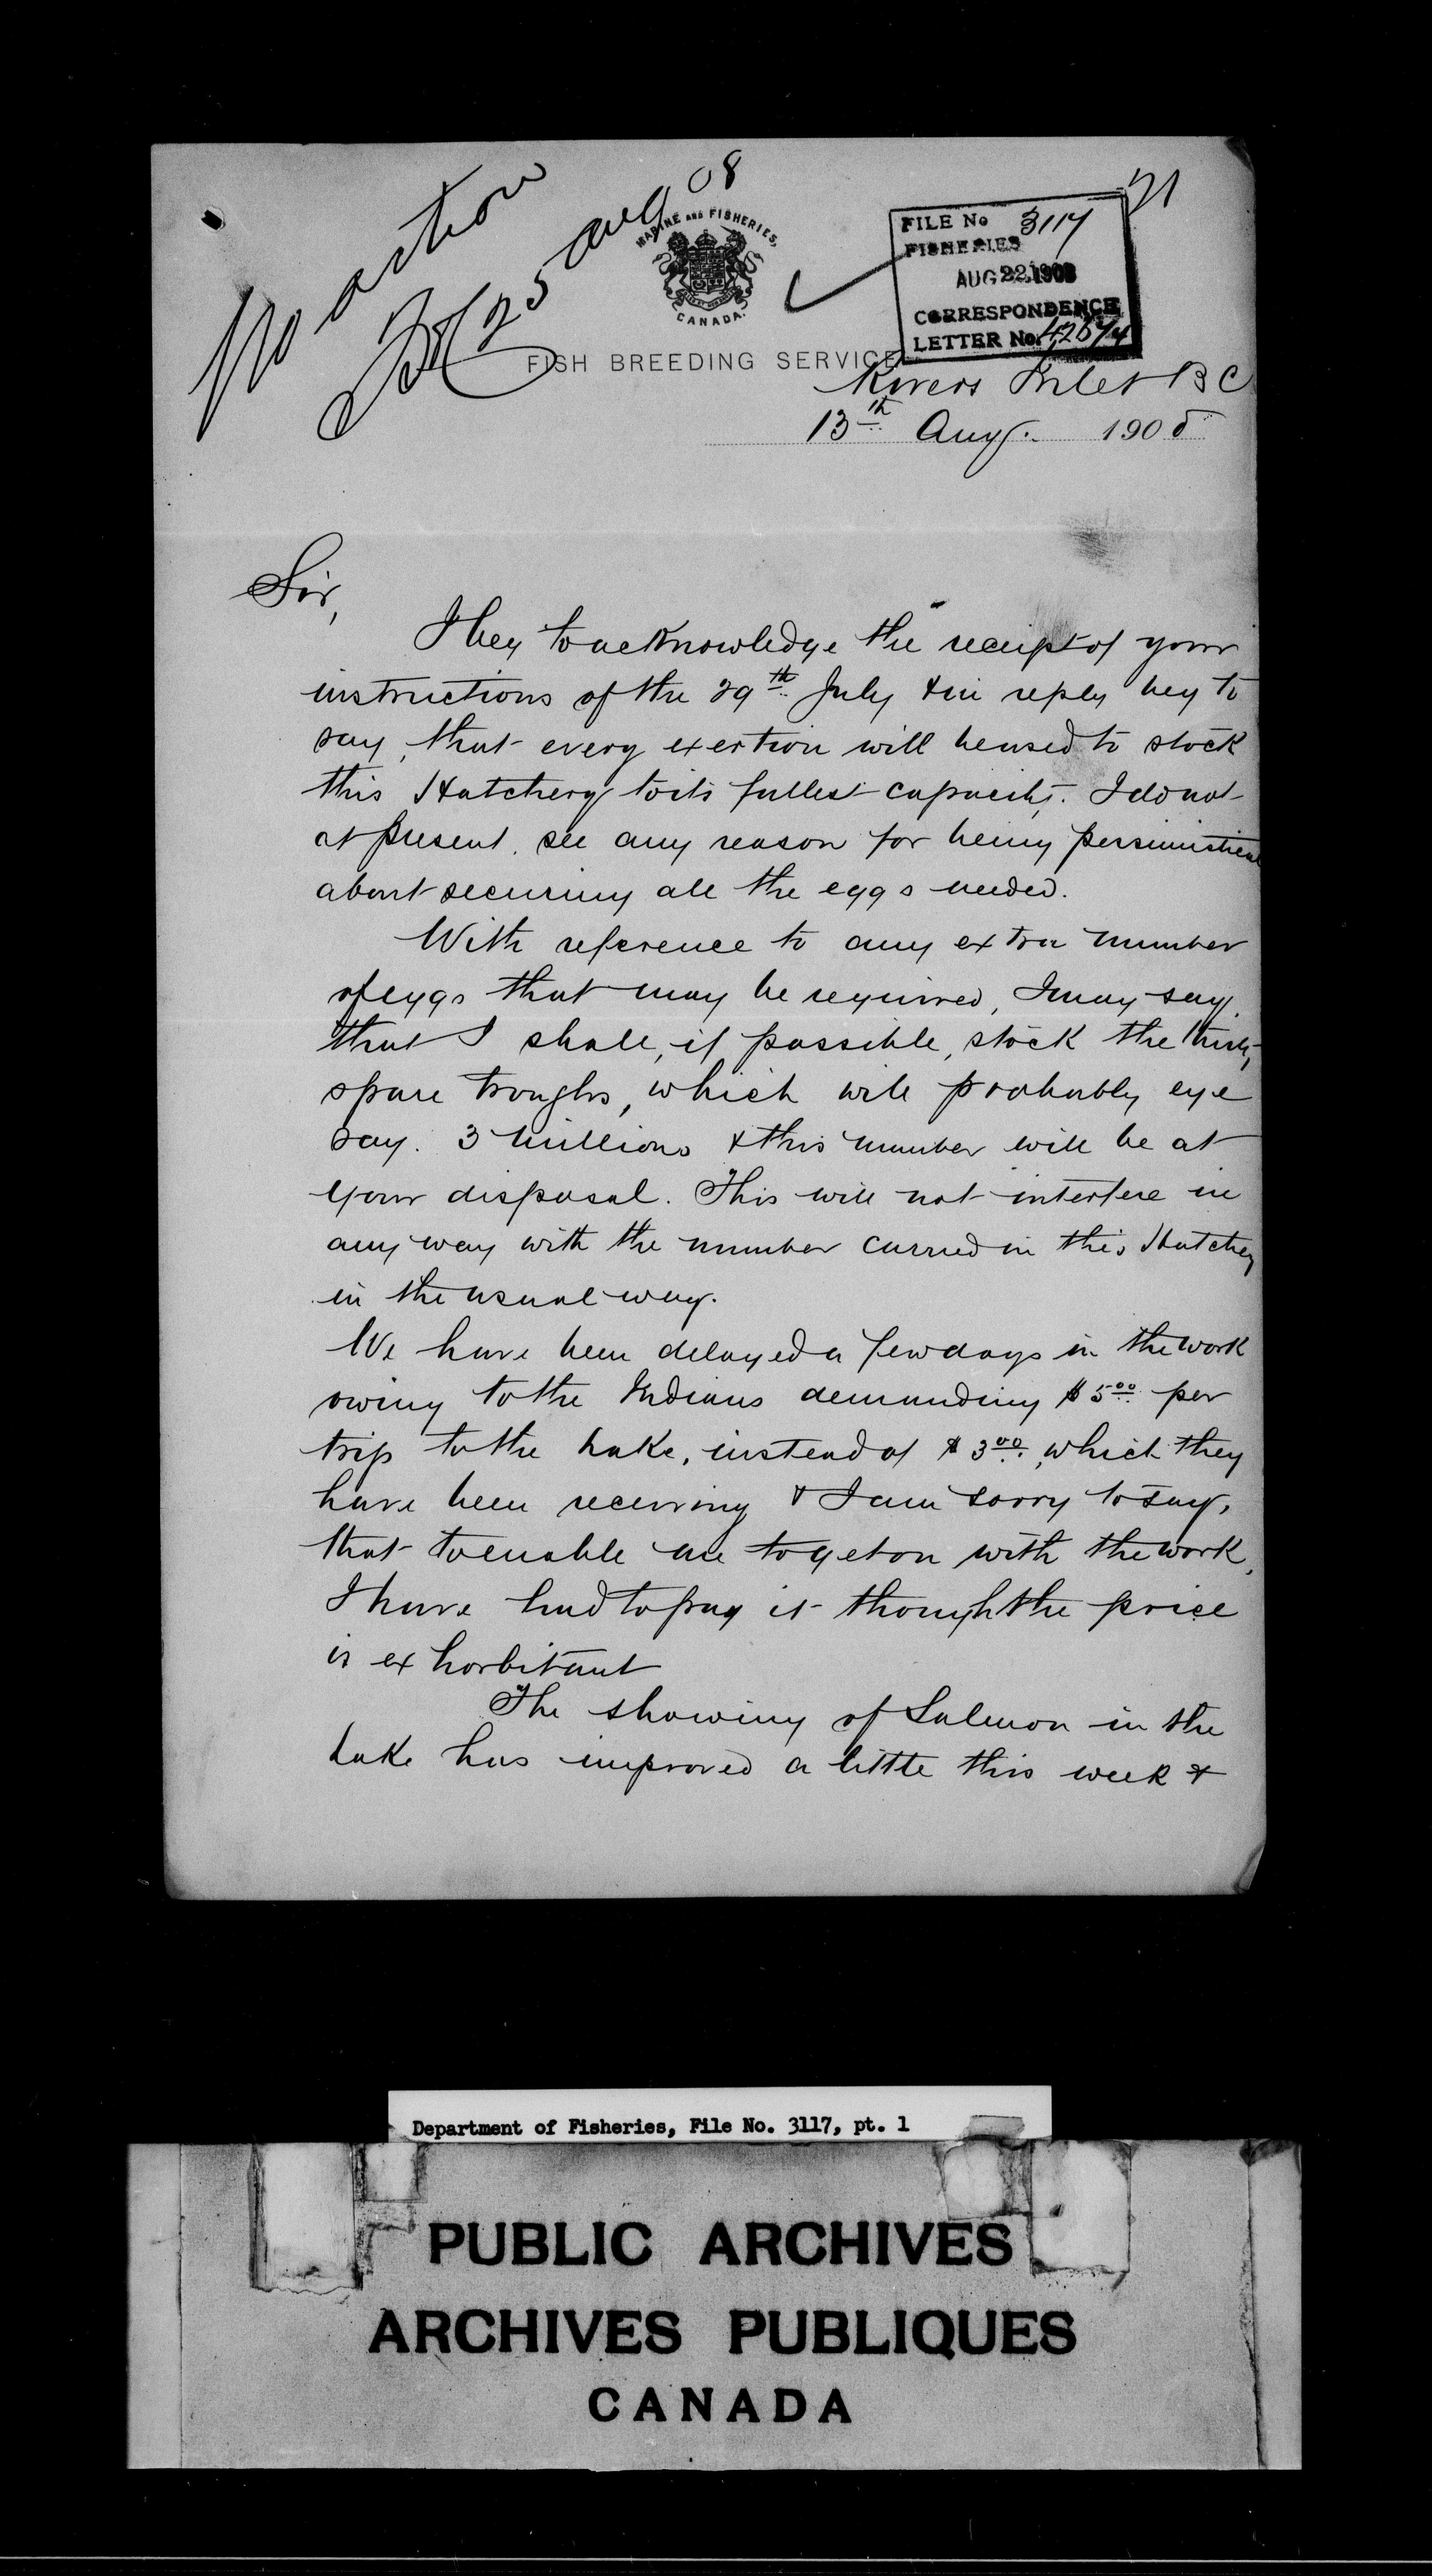 No action
25 Aug 08
21
MARINE AND FISHERIES,
CANADA.
FILE No 3117
FISHERIES
AUG 22 1908
CORRESPONDENCE
LETTER No.
FISH BREEDING SERVICE
Rivers Inlet B C
13th Aug. 1908
Sir,
I beg to acknowledge the receipt of your
instructions of the 29th July & in reply beg to
say, that every exertion will be used to stock
this Hatchery to its fullest capacity. I do not
at present, see any reason for being pessimistical
about securing all the eggs needed.
With reference to any extra number
of eggs that may be required, I may say,
that I shall, if possible, stock the thirty
spare troughs, which will probably eye
say. 3 millions & this number will be at
your disposal. This will not interfere in
any way with the number carried in this Hatchery
in the usual way.
We have been delayed a few days in the work
owing to the Indians demanding $5.00 per
trip to the Lake, instead of $3.00, which they
have been receiving & I am sorry to say,
that to enable me to get on with the work,
I have had to pay it though the price
is exhorbitant
The showing of Salmon in the
Lake has improved a little this week &
Department of Fisheries, File No. 3117, pt. 1
PUBLIC ARCHIVES
ARCHIVES PUBLIQUES
CANADA